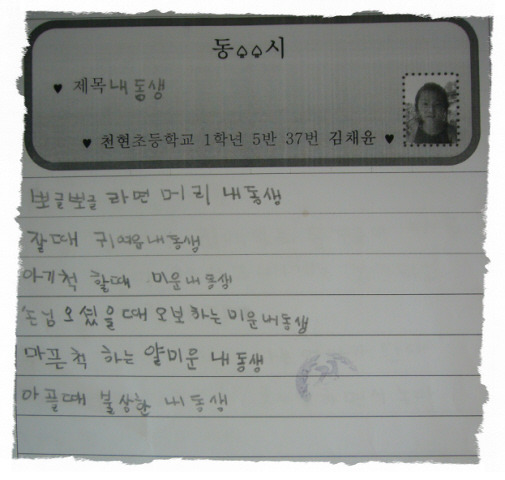 동♤♤시
♥ 제목 내 동생
♥ 천현초등학교 1학년 5반 37번 김채윤 ♥
뽀글뽀글 라면 머리 내 동생
잘때 귀여운 내 동생
아기척 할때 미운 내 동생
손님 오셨을 때 오보하는 미운 내 동생
마픈척 하는 얄미운 내 동생
아플때 불상한 내 동생